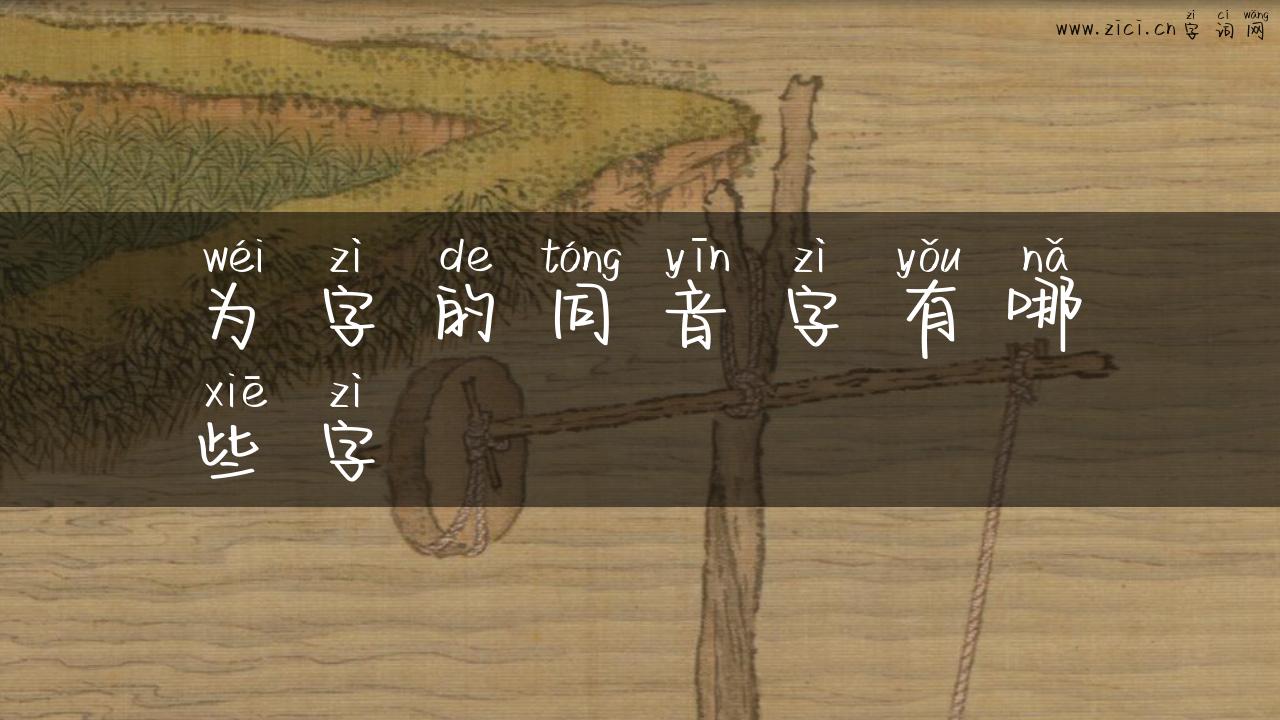 zì cí wǎng
www.zici.cn 字 词 网
wéi zì de tóng yīn zì yǒu nǎ
为 字 的 同 音 字 有 哪
xiē zì
些 字